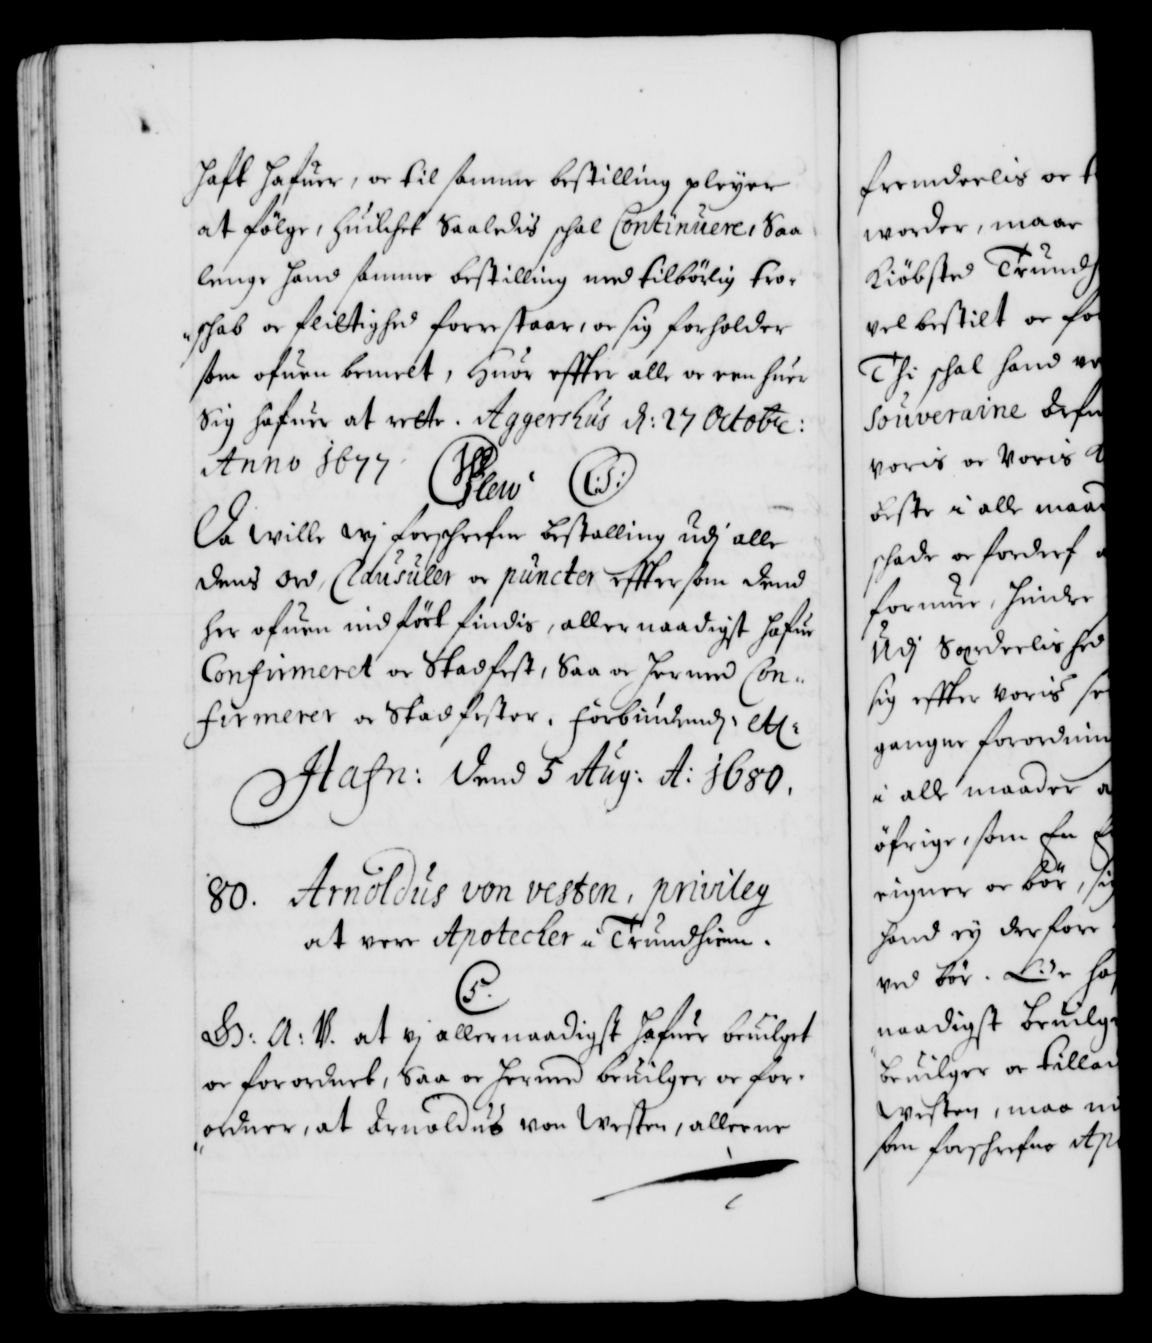 haft hafuer, oc til samme bestilling pleyer
at følge, huilchet Saaledis schal Continuere, Saa
lenge hand samme bestilling med tilbørlig tro-
schab oc flittighed forrestaar, oc sig forholder
som ofuen bemelt, Huor effter alle oc een huer
Sig hafuer at rette. Aggershus d: 27 Octobr:
Anno 1677.
Da wille wj forschrefne bestalling udj alle
dens ord, Clausuler oc puncter effter som dend
her ofuen indført findis, allernaadigst hafue
Confirmeret oc Stadfest, Saa oc hermed Con-
firmerer oc Stadfester. Forbiudendj: etc:
Hafn: dend 5 Aug: A: 1680.
80. Arnoldus von vesten, privileg
at vere Apotecker i Trundhiem.
C5.
G: A: V. at vj allernaadigst hafuer beuilget
oc forordnet, Saa oc hermed beuilger oc for-
ordner, at Arnoldus von Westen, allerne
fremdeelis oc
worder, maae
Kiøbsted Trundh
vel bestilt oc for
Thi schal hand
Souveraine
voris oc Voris
beste i alle maad
schade oc forderf
formue, hindre
Udj Særdeelished
sig effter voris
gangne forordnin
i alle maader
øfrige, som En
eigner oc bør, sig
hand ej derfore
ved bør.
naadigst beuilg
beuilger oc tillad
Westen, maa
som forschrefne Apo